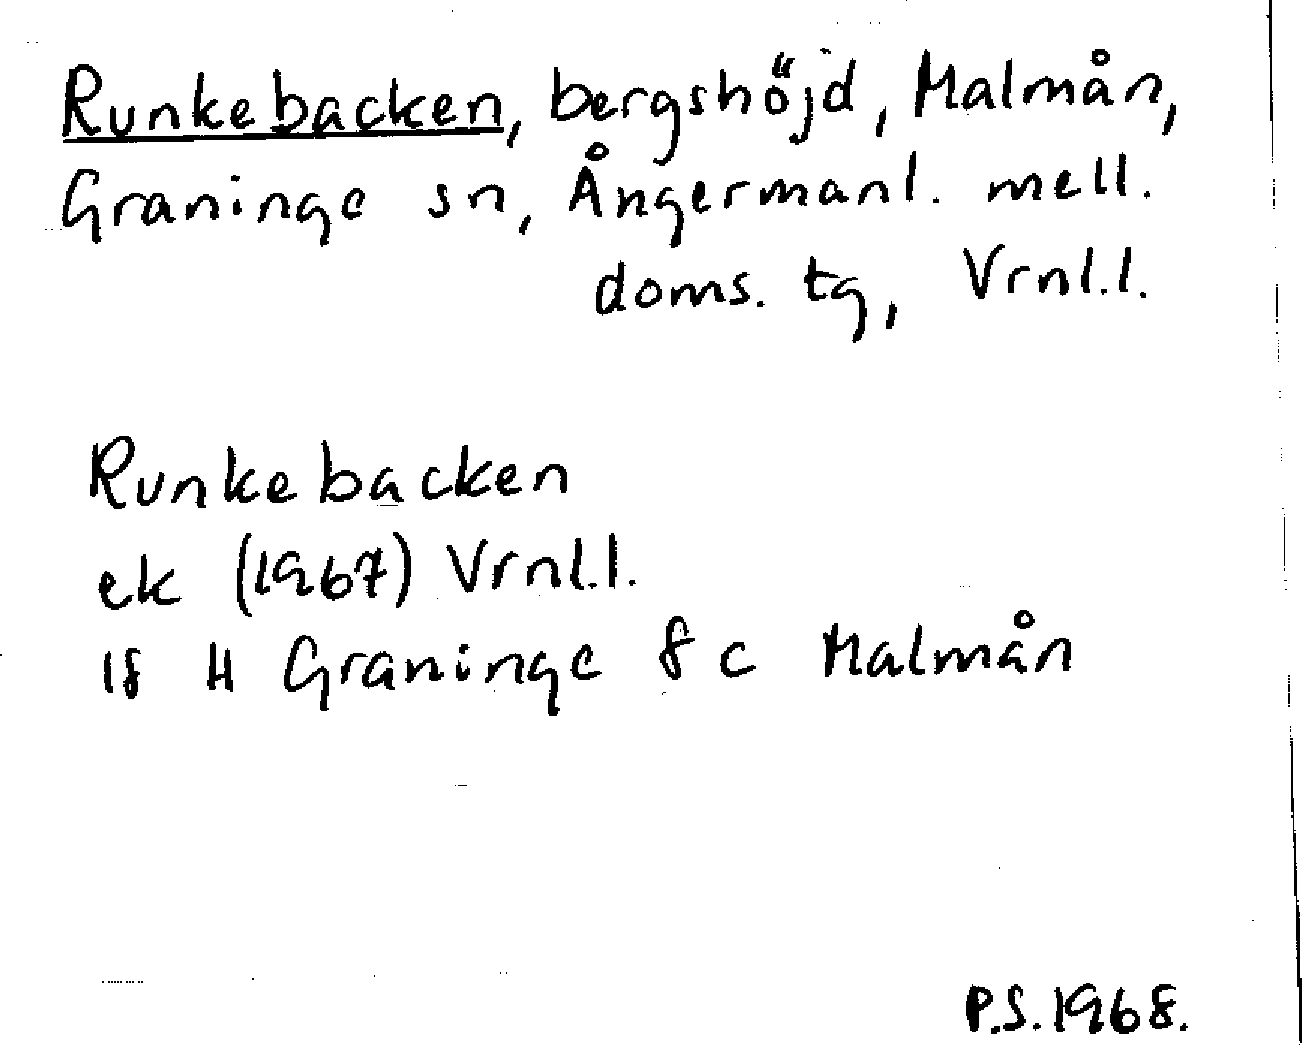 Runkebacken, bergshöjd, Malmån,
Graninge sn, Ångermanl. mell.
doms. tg, Vrnl.l.
Runkebacken
ek (1967) Vrnl.l.
18 H Graninge 8 c Malmån
P.S. 1968.